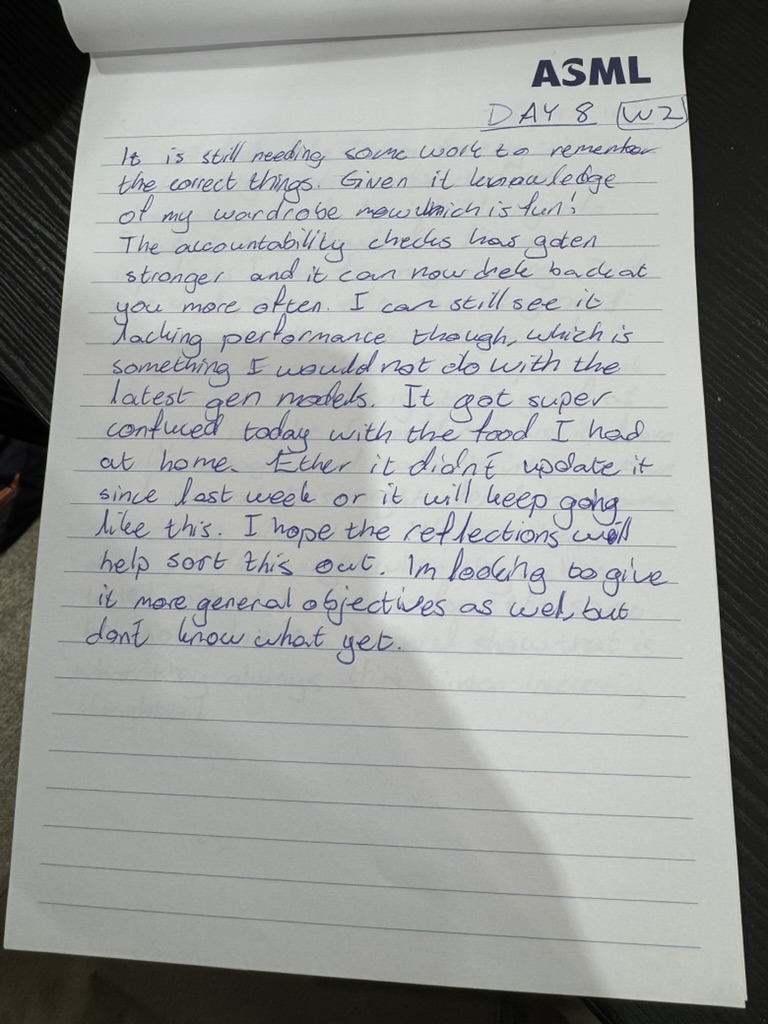 ASML
DAY 8 (W2)
It is still needing some work to remember
the correct things. Given it knowledge
of my wardrobe now which is fun!
The accountability checks has goten
stronger and it can now chek back at
you more often. I can still see it
lacking performance though, which is
something I would not do with the
latest gen models. It got super
confused today with the food I had
at home. Ether it didn't update it
since last week or it will keep going
like this. I hope the reflections will
help sort this out. Im looking to give
it more general objectives as wel, but
dont know what yet.